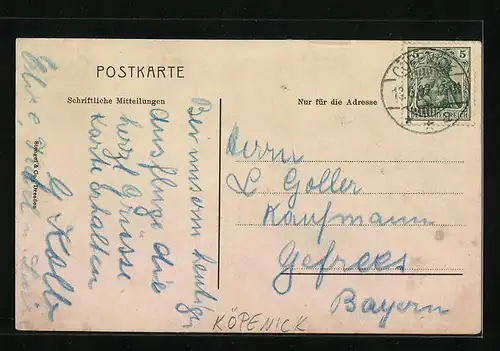 POSTKARTE
Schriftliche Mitteilungen
Nur für die Adresse
5 5
DEUTSCHES REICH
Bei uns am heutigen
Ausfluge die
herzl Grüsse.
Karte erhalten
G Kolb
Herrn
L. Goller
Kaufmann
Gefrees
Bayern
KÖPENICK